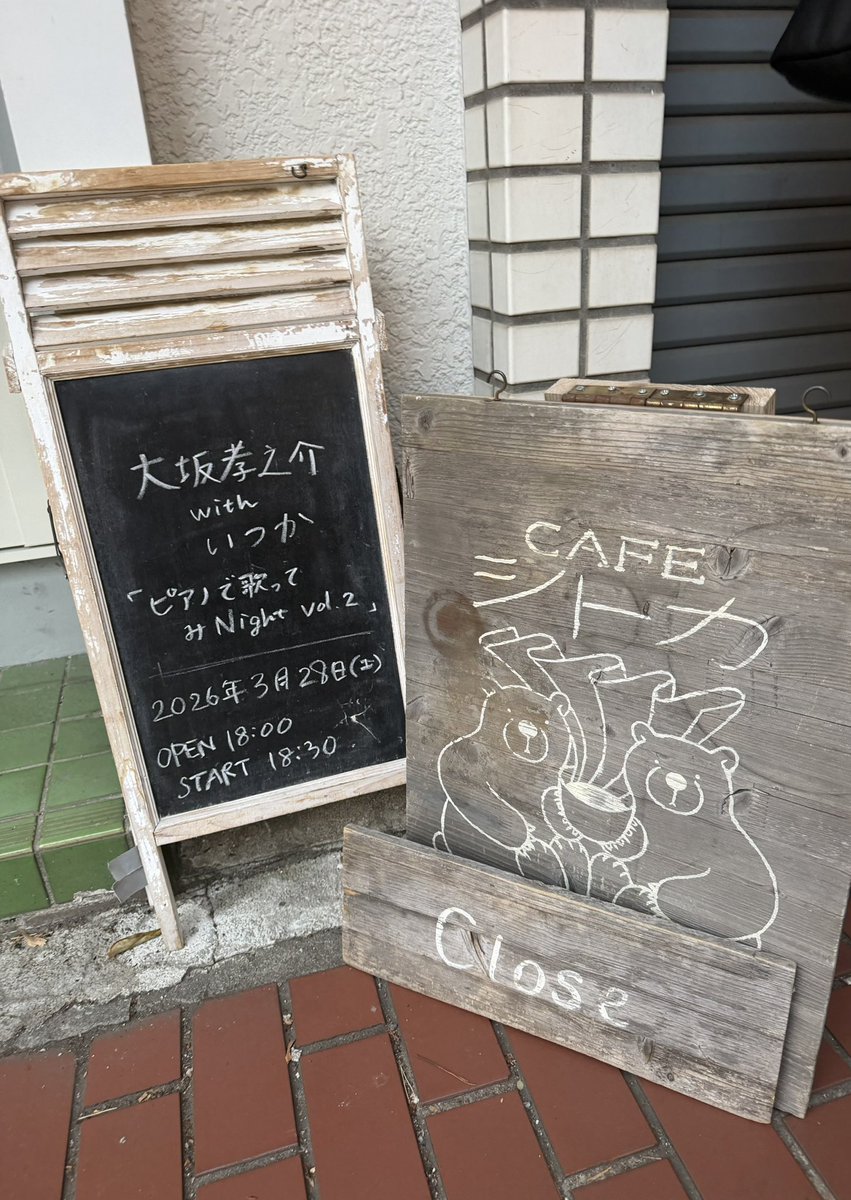 大坂孝之介
with
いつか
「ピアノで歌って
みNight vol.2」
2026年3月28日(土)
OPEN 18:00
START 18:30
CAFE
シトカ
Close